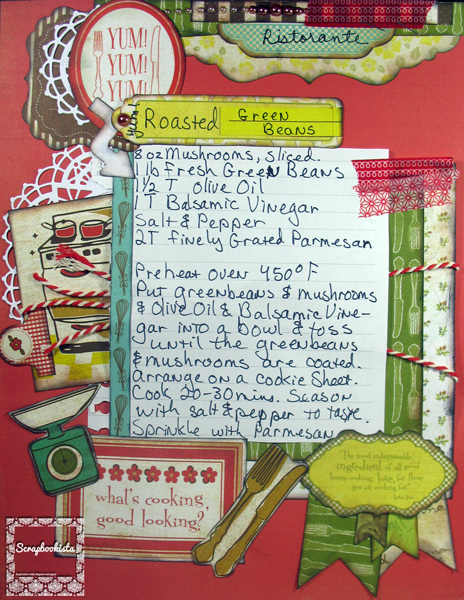 YUM!
YUM!
YUM!
Ristorante
yum!
Roasted Green
Beans
8 oz Mushrooms, sliced.
1 lb Fresh Green Beans
1½ T Olive Oil
1 T Balsamic Vinegar
Salt & Pepper
2T finely Grated Parmesan
Preheat oven 450°F
Put greenbeans & mushrooms
& Olive Oil & Balsamic Vine-
gar into a bowl & toss
until the greenbeans
& mushrooms are coated.
Arrange on a cookie sheet.
Cook 20-30 mins. Season
with salt & pepper to taste.
Sprinkle with Parmesan
what's cooking,
good looking?
The most indispensable
ingredient of all good
home cooking: love, for those
you are cooking for.
Scrapbookista